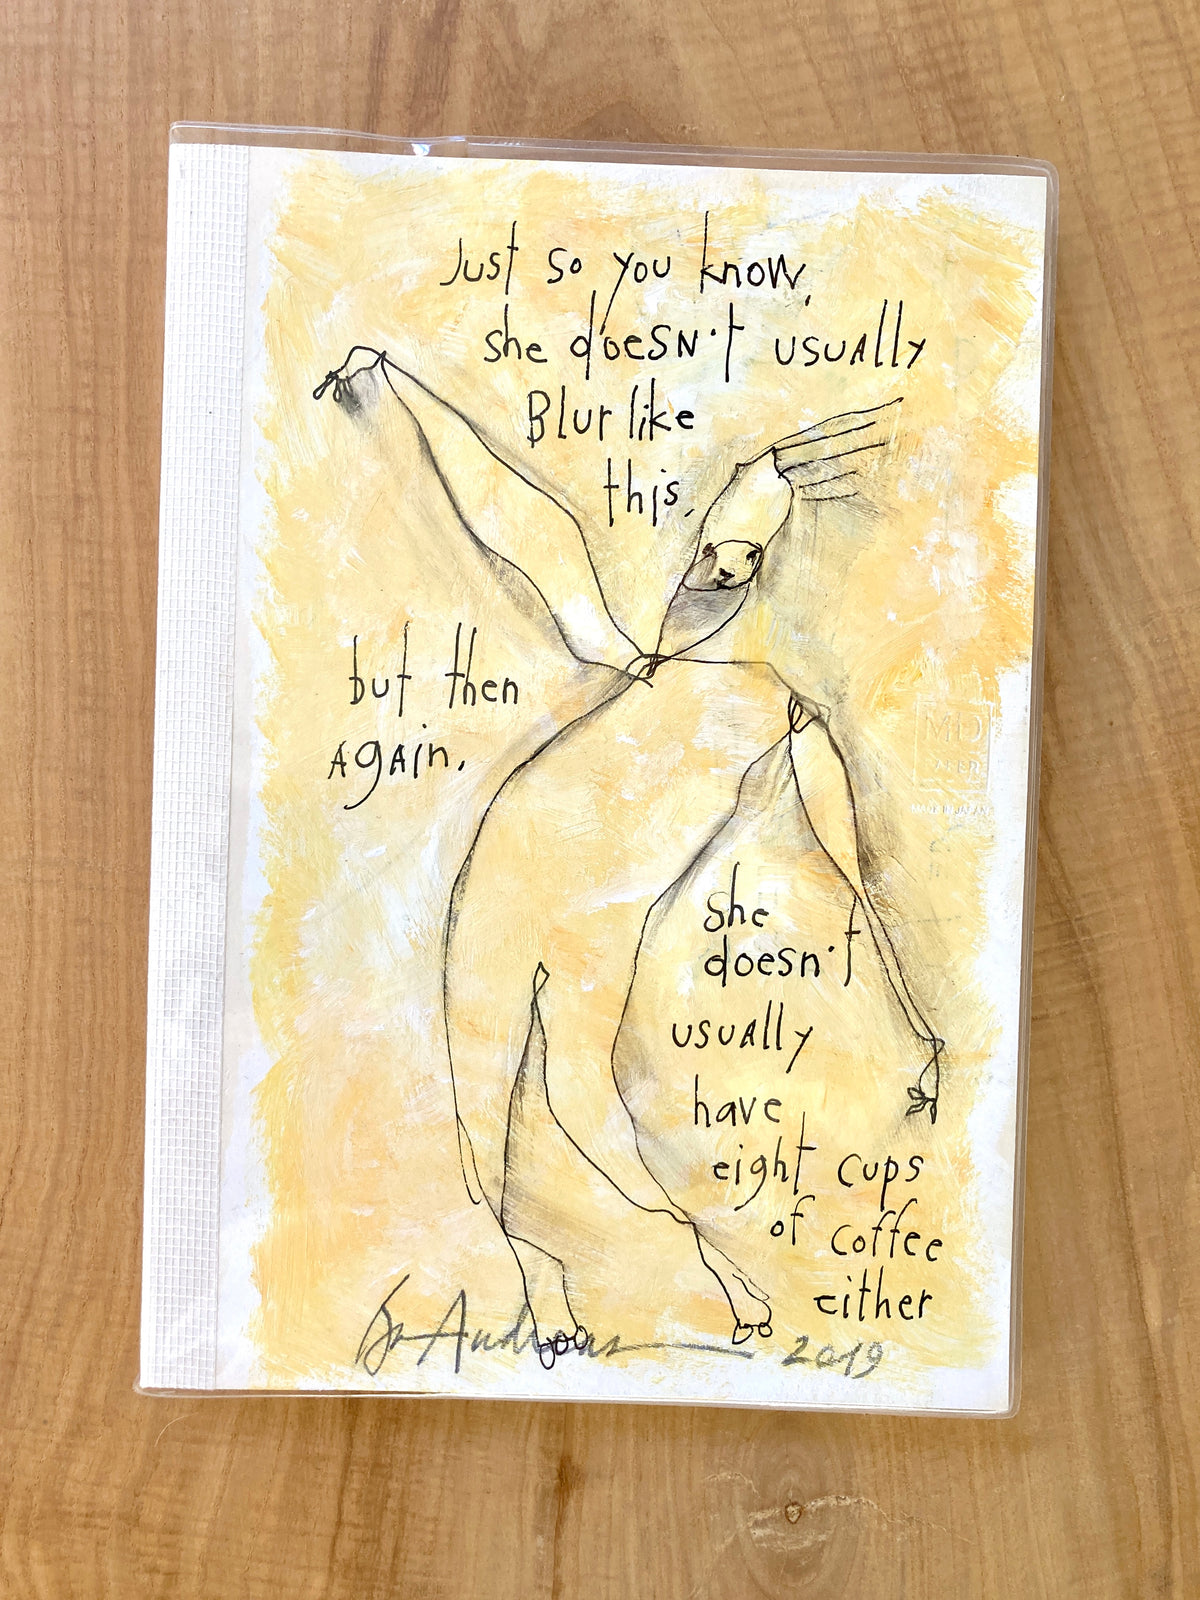 Just so you know,
she doesn't usually
Blur like
this.
but then
again,
she
doesn't
usually
have
eight cups
of coffee
either
Bo Andreas 2019
MD
PAPER
MADE IN JAPAN